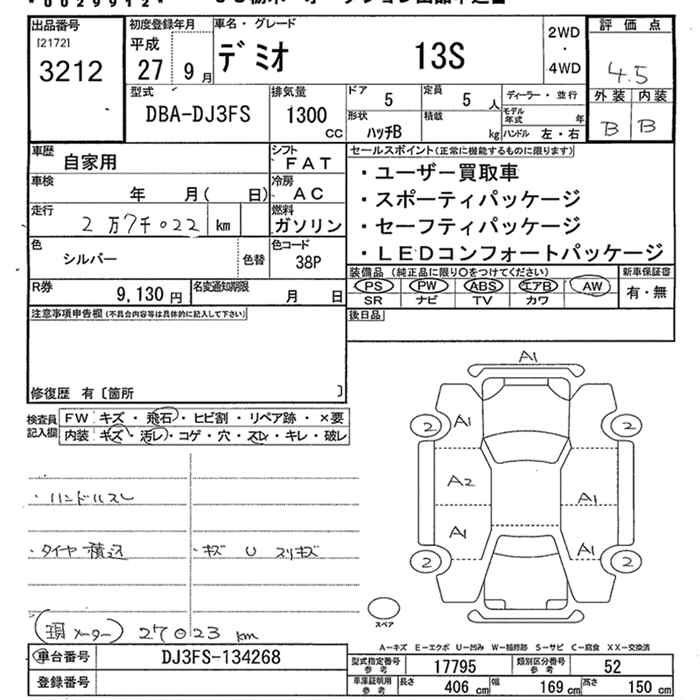 *0029912*
出品番号 [2172] 3212
初度登録年月 平成 27 9月
車名・グレード デミオ 13S
2WD・4WD
評価点 4.5
外装 B 内装 B
型式 DBA-DJ3FS
排気量 1300 CC
ドア 5 定員 5人
形状 ハッチB 積載 kg
ディーラー・並行
モデル年式 年
ハンドル 左・右
車歴 自家用
シフト FAT
車検 年 月( 日)
冷房 AC
走行 2万7千022 km
燃料 ガソリン
色 シルバー 色替
色コード 38P
R券 9,130円
名変通知期限 月 日
セールスポイント(正常に機能するものに限ります)
・ユーザー買取車
・スポーティパッケージ
・セーフティパッケージ
・LEDコンフォートパッケージ
装備品 (純正品に限り○をつけてください) 新車保証書
PS PW ABS エアB AW 有・無
SR ナビ TV カワ
後日品
注意事項申告欄(不具合内容等は具体的に記入して下さい)
修復歴 有〔箇所 〕
検査員記入欄
FW キズ・飛石・ヒビ割・リペア跡・×要
内装 キズ・汚レ・コゲ・穴・スレ・キレ・破レ
・ハンドルスレ
・タイヤ積込 ・キズ U スリキズ
(現メーター) 27023 km
A1
2 A1 2
A2 A1
A1 A1
2 2
スペア
A-キズ E-エクボ U-凹み W-補修跡 S-サビ C-腐食 XX-交換済
車台番号 DJ3FS-134268
登録番号
型式指定番号 参考 17795 類別区分番号 参考 52
車庫証明用 参考 長さ 406 cm 幅 169 cm 高さ 150 cm